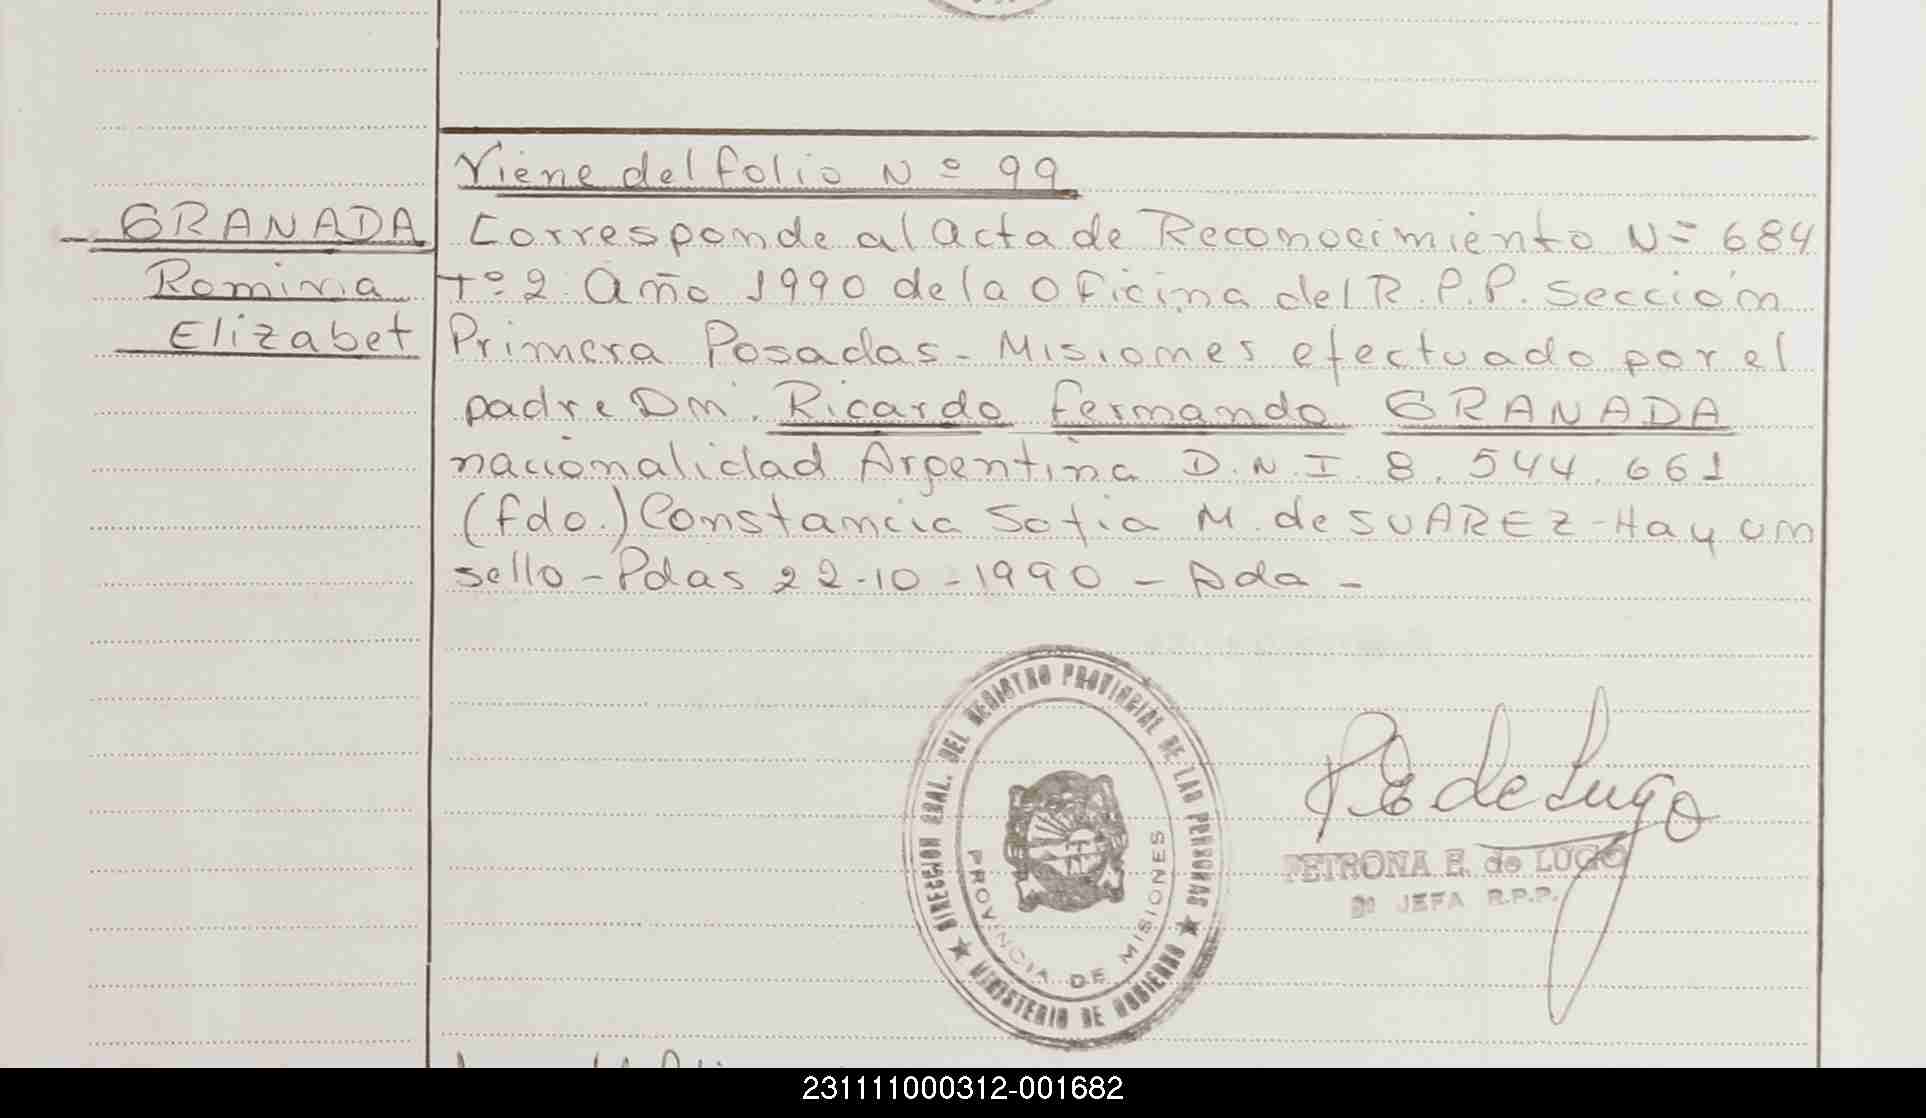 Viene del folio Nº 99
GRANADA
Romina
Elizabet
Corresponde al acta de Reconocimiento Nº 684
tº 2 año 1990 de la Oficina del R.P.P. sección
Primera Posadas - Misiones efectuado por el
padre Dn. Ricardo Fernando GRANADA
nacionalidad Argentina D.N.I. 8.544.661
(fdo.) Constancia Sofia M. de SUAREZ - Hay un
sello - Pdas 22-10-1990 - Ada -
DIRECCION GRAL. DEL REGISTRO PROVINCIAL DE LAS PERSONAS
MINISTERIO DE GOBIERNO
PROVINCIA DE MISIONES
PE de Lugo
PETRONA E. de LUGO
JEFA R.P.P.
231111000312-001682